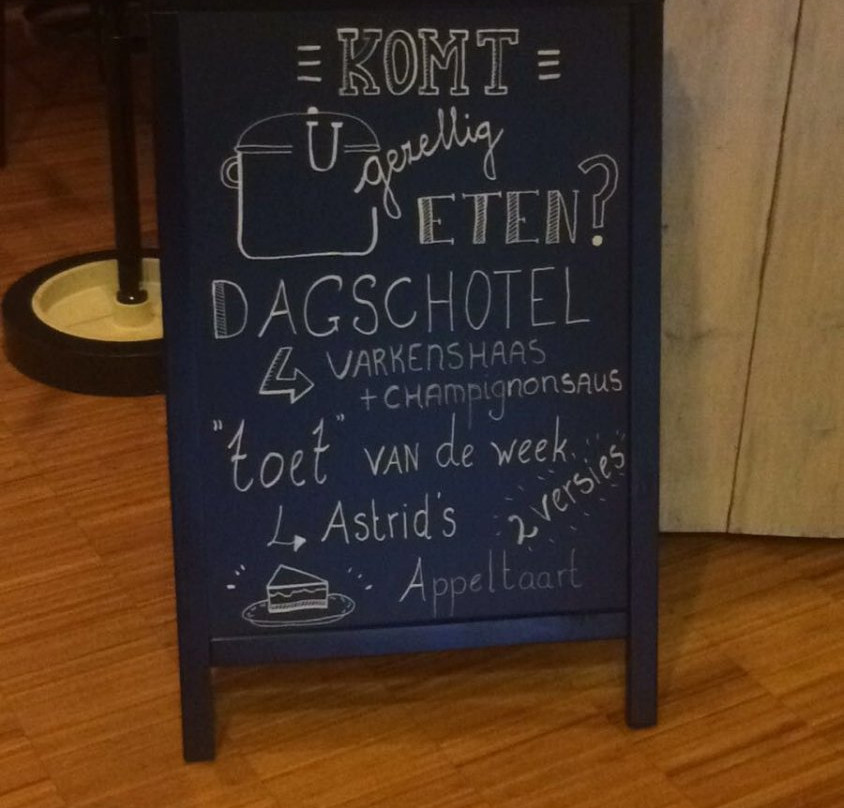 KOMT
U gezellig
ETEN?
DAGSCHOTEL
VARKENSHAAS
+ CHAMpignonsAUS
"toet" VAN de week
2 versies
Astrid's
Appeltaart